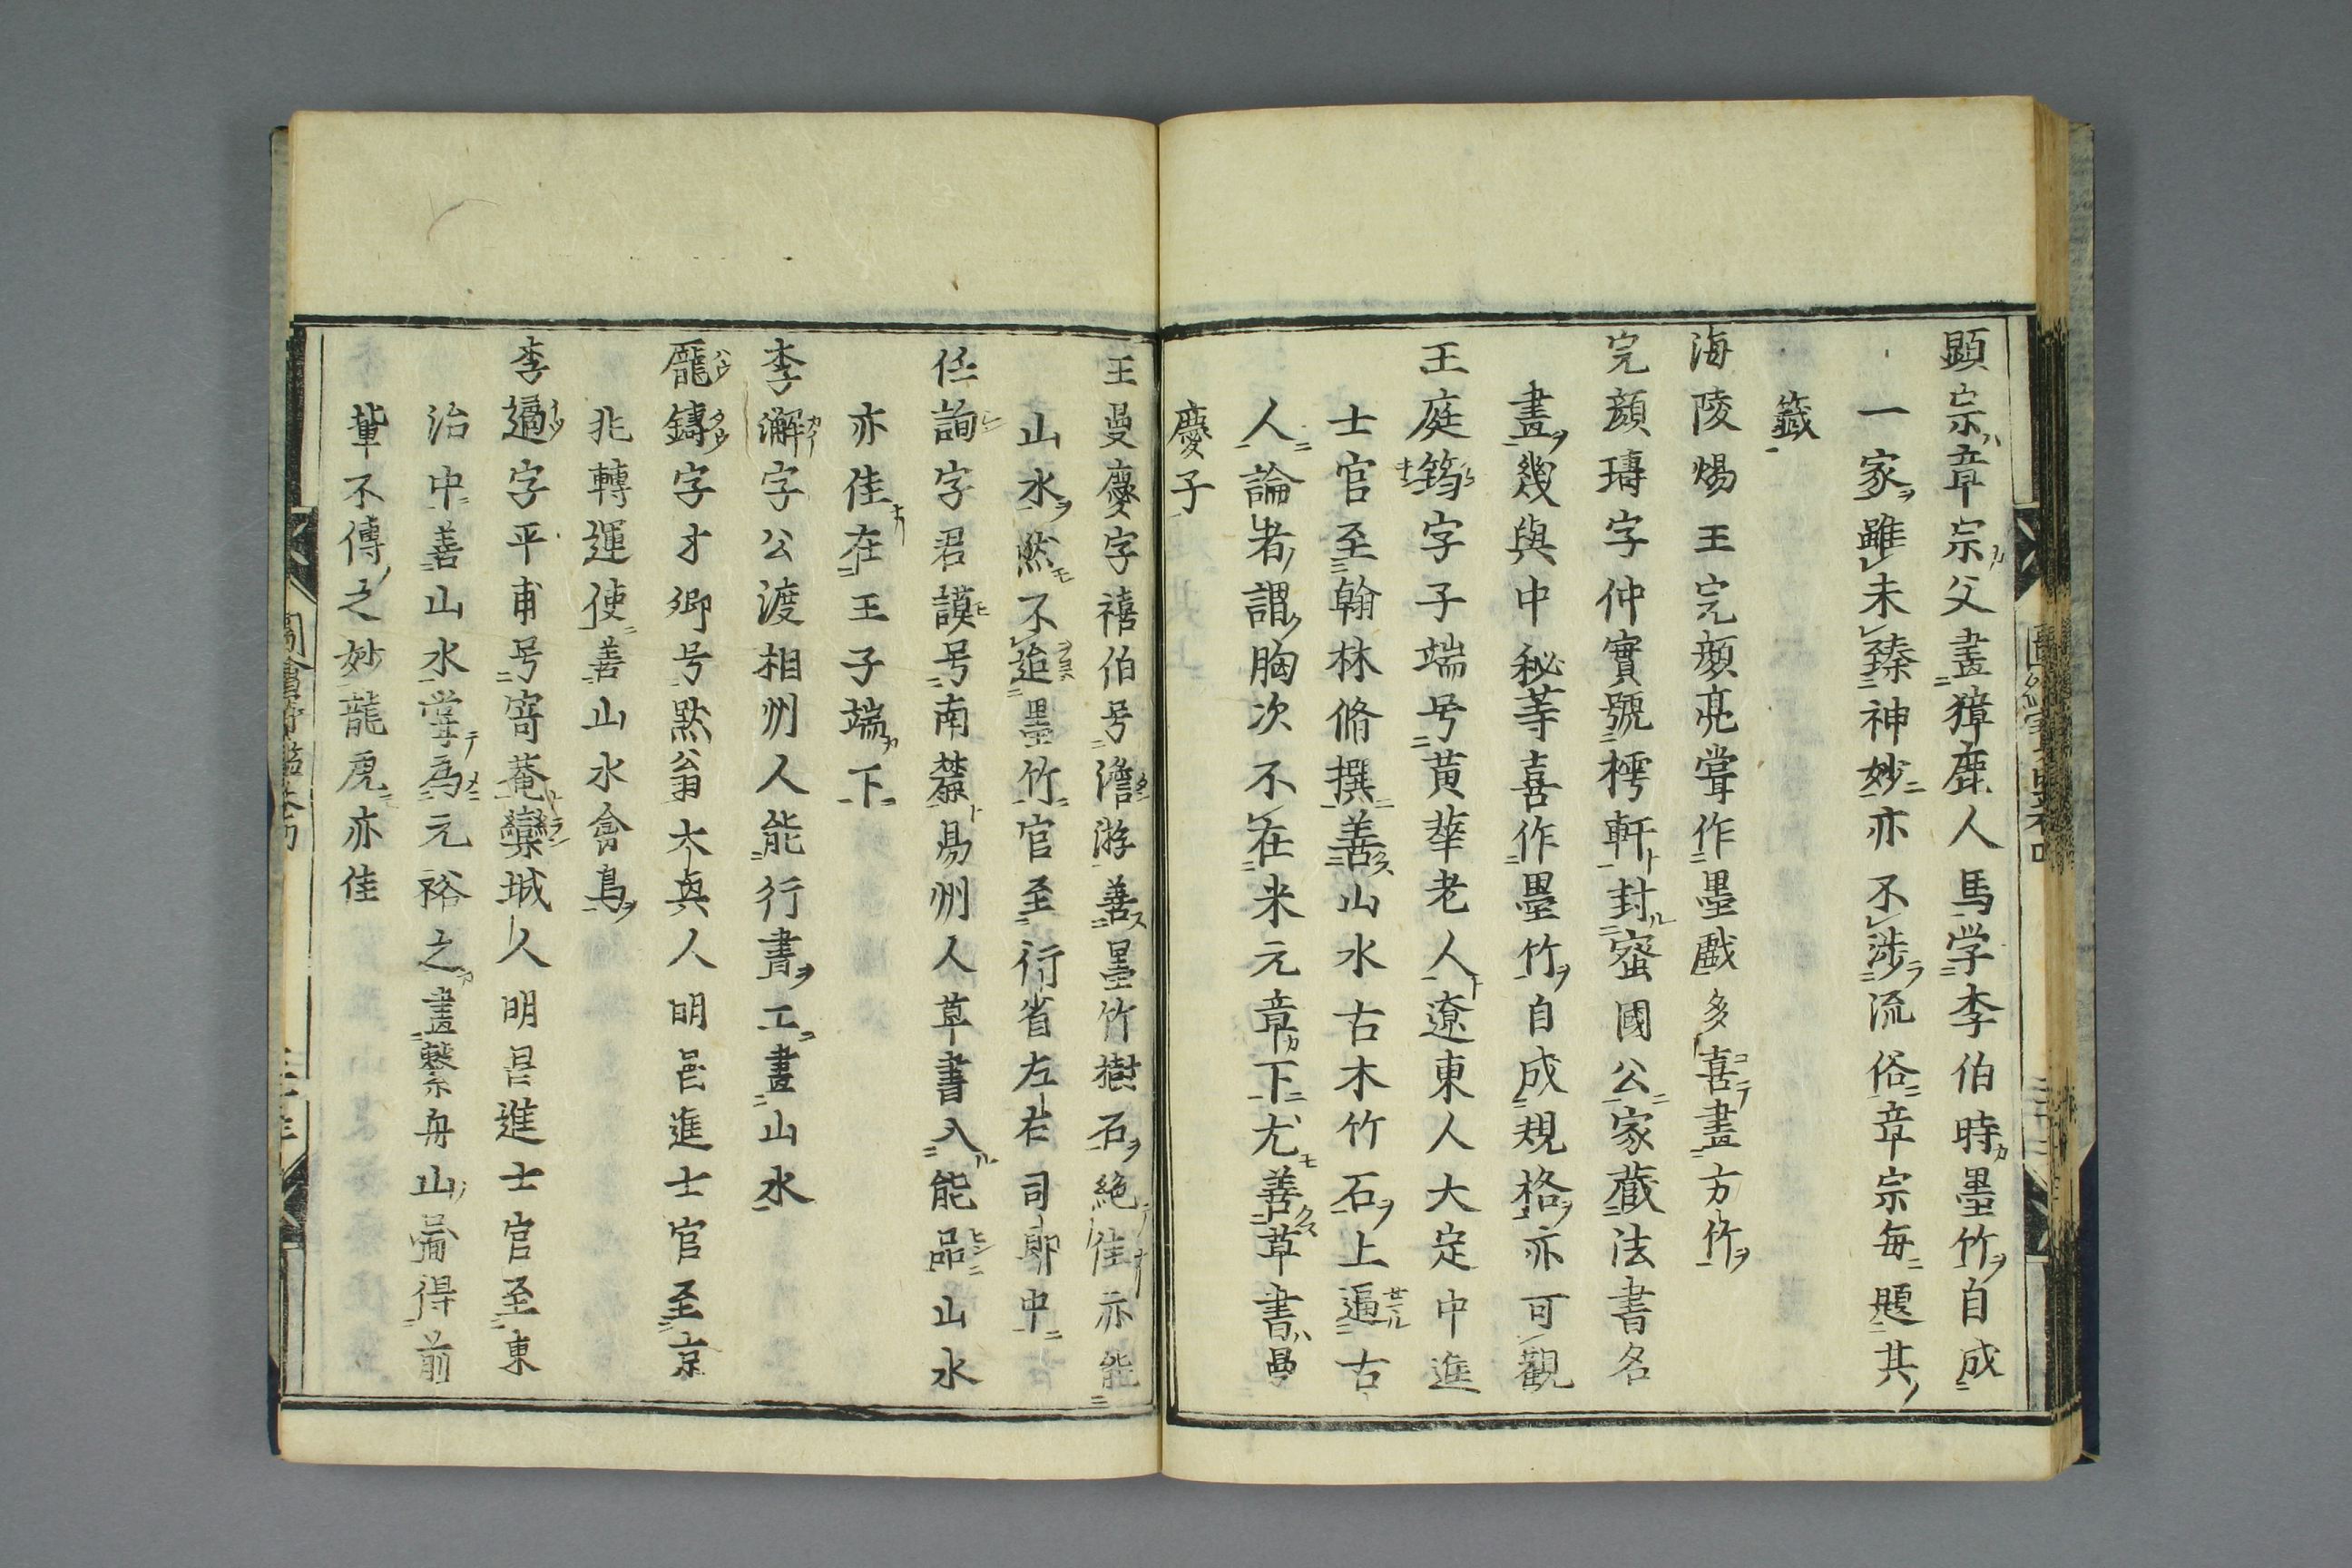 顕宗章宗父畫獐鹿人馬学李伯時墨竹自成
一家雖未臻神妙亦不渉流俗章宗每題其
籤
海陵煬王完顔亮嘗作墨戲多喜畫方竹
完顔璹字仲實號樗軒封蜜國公家藏法書名
畫幾與中秘等喜作墨竹自成規格亦可觀
王庭筠字子端号黄華老人遼東人大定中進
士官至翰林脩撰善山水古木竹石上逼古
人論者謂胸次不在米元章下尤善草書曼
慶子
王曼慶字禧伯号澹游善墨竹樹石絶佳亦能
山水然不迨墨竹官至行省左右司郎中
任詢字君謨号南麓易州人草書入能品山水
亦佳在王子端下
李澥字公渡相州人能行書工畫山水
龎鑄字才卿号默翁大興人明昌進士官至京
兆轉運使善山水禽鳥
李遹字平甫号寄菴欒城人明昌進士官至東
治中善山水嘗為元裕之畫繋舟山圖得前
輩不傳之妙龍虎亦佳